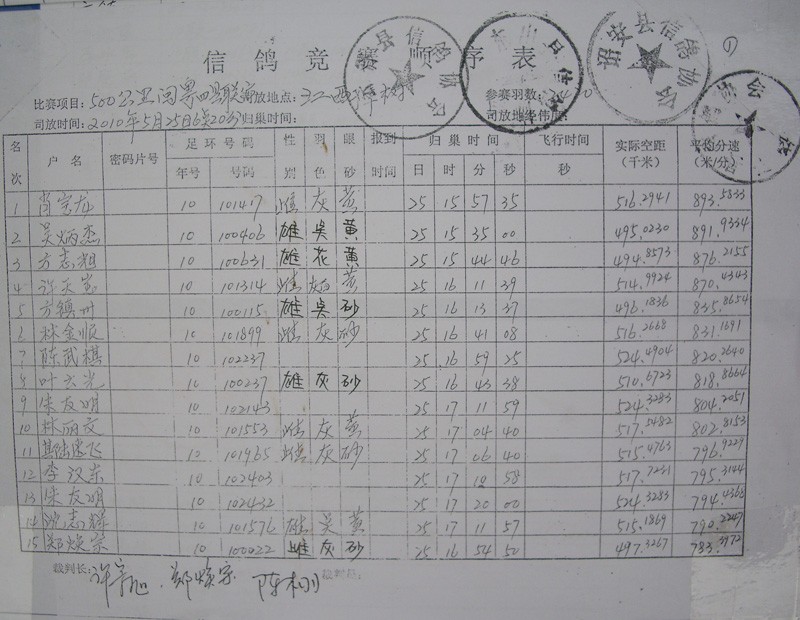 信鸽竞赛顺序表
比赛项目:500公里闽粤四县联赛 司放地点:江西樟树 参赛羽数:
司放时间:2010年5月25日6点20分 归巢时间: 司放地
诏安县信鸽协会
县信鸽协会
名次 户名 密码片号 足环号码 性别 羽色 眼砂 报到时间 归巢时间 飞行时间 实际空距(千米) 平均分速(米/分)
年号 号码 日 时 分 秒 秒
1 肖宗龙 10 101417 雌 灰 黄 25 15 57 35 516.2941 893.5833
2 吴炳杰 10 100406 雄 吴 黄 25 15 35 00 495.0230 891.9334
3 方志 10 100631 雄 花 黄 25 15 44 46 494.8573 876.2155
4 许天 10 101314 雌 黄 25 16 11 39 514.9924 870.4343
5 方镇州 10 100115 雄 吴 砂 25 16 13 37 496.1836 835.8654
6 林金顺 10 101899 雌 灰 砂 25 16 41 08 516.2668 831.1691
7 陈武棋 10 102237 25 16 59 25 524.4904 820.2640
8 叶六光 10 100237 雄 灰 砂 25 16 43 38 510.6723 818.8664
9 朱友明 10 102143 25 17 11 59 524.3283 804.2051
10 林丽文 10 101553 雌 灰 黄 25 17 04 40 517.5482 802.8153
11 10 101965 雌 灰 砂 25 17 06 40 515.4763 796.9227
12 李汉东 10 102403 25 17 10 58 517.7231 795.3144
13 朱友明 10 102432 25 17 20 00 524.3283 794.4368
14 沈志辉 10 101576 雄 吴 黄 25 17 11 57 515.1869 790.2247
15 郑焕宗 10 100022 雌 灰 砂 25 16 54 50 497.3267 783.3972
裁判长: 郑焕宗 裁判员: